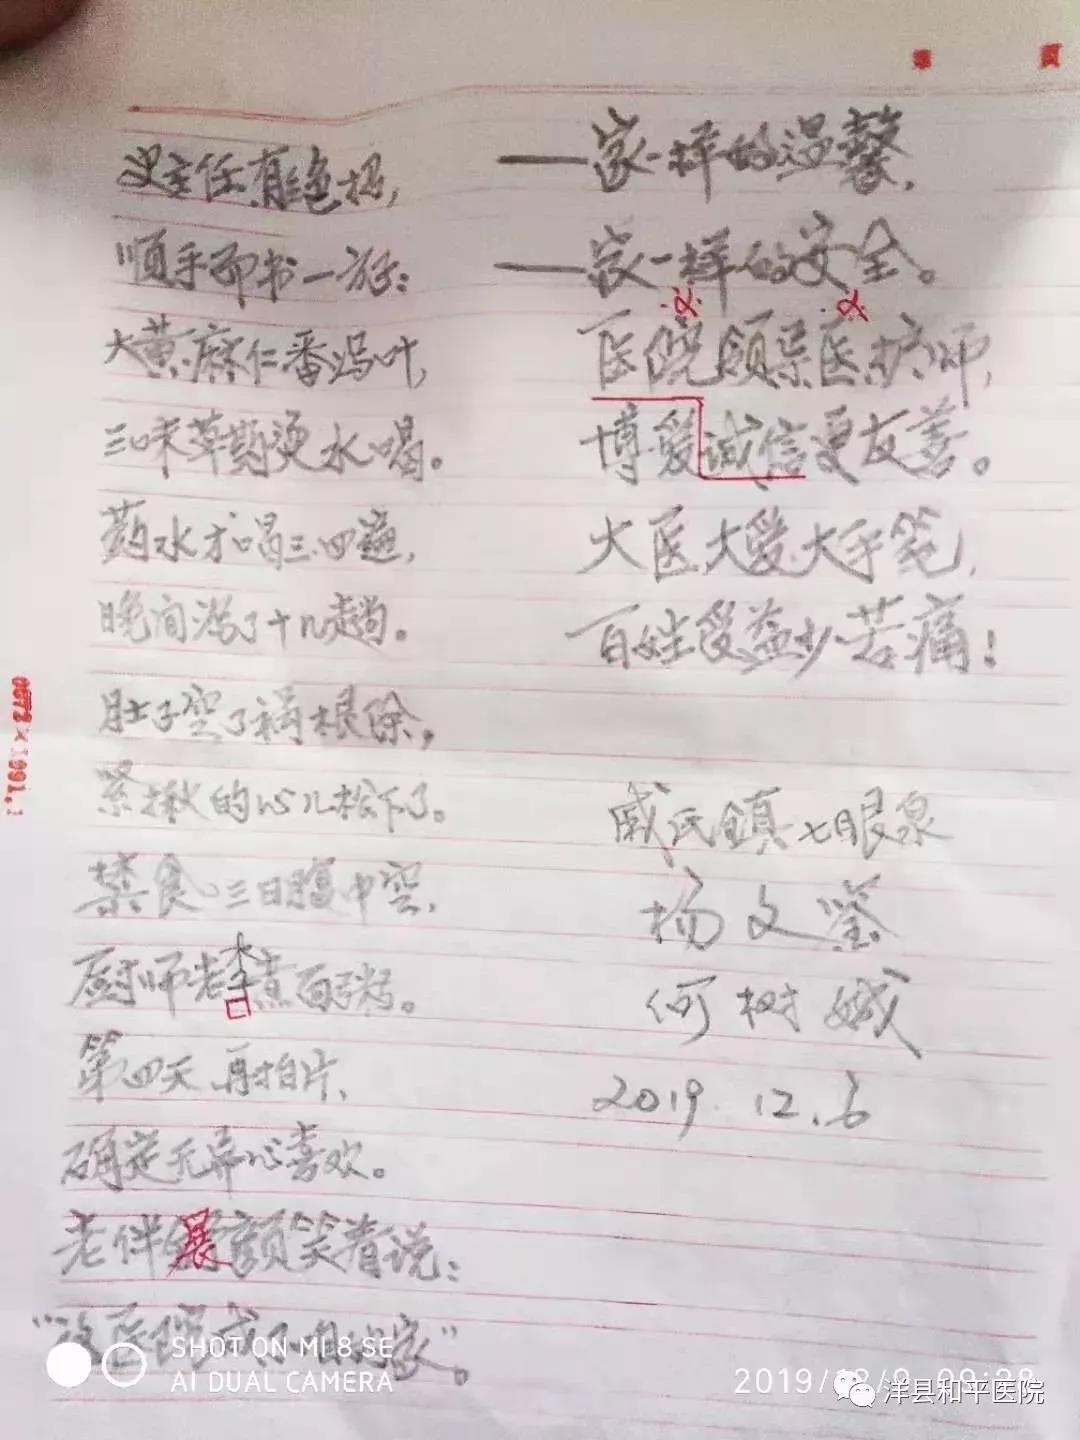 第 页
主任有绝招，
顺手而书一方子：
大黄麻仁番泻叶，
三味草药烫水喝。
药水才喝三四遍，
晚间泻了十几趟。
肚子空了祸根除，
紧揪的心儿松下了。
禁食三日腹中空，
厨师老李煮百粥。
第四天再拍片、
确定无异心喜欢。
老伴展颜笑着说：
“这医院成了自家”。
——家一样的温馨，
——家一样的安全。
医院领导医护师，
博爱诚信更友善。
大医大爱大手笔，
百姓受益少苦痛！
戚氏镇七眼泉
杨文鉴
何树嫒
2019.12.6
SHOT ON MI 8 SE
AI DUAL CAMERA
洋县和平医院